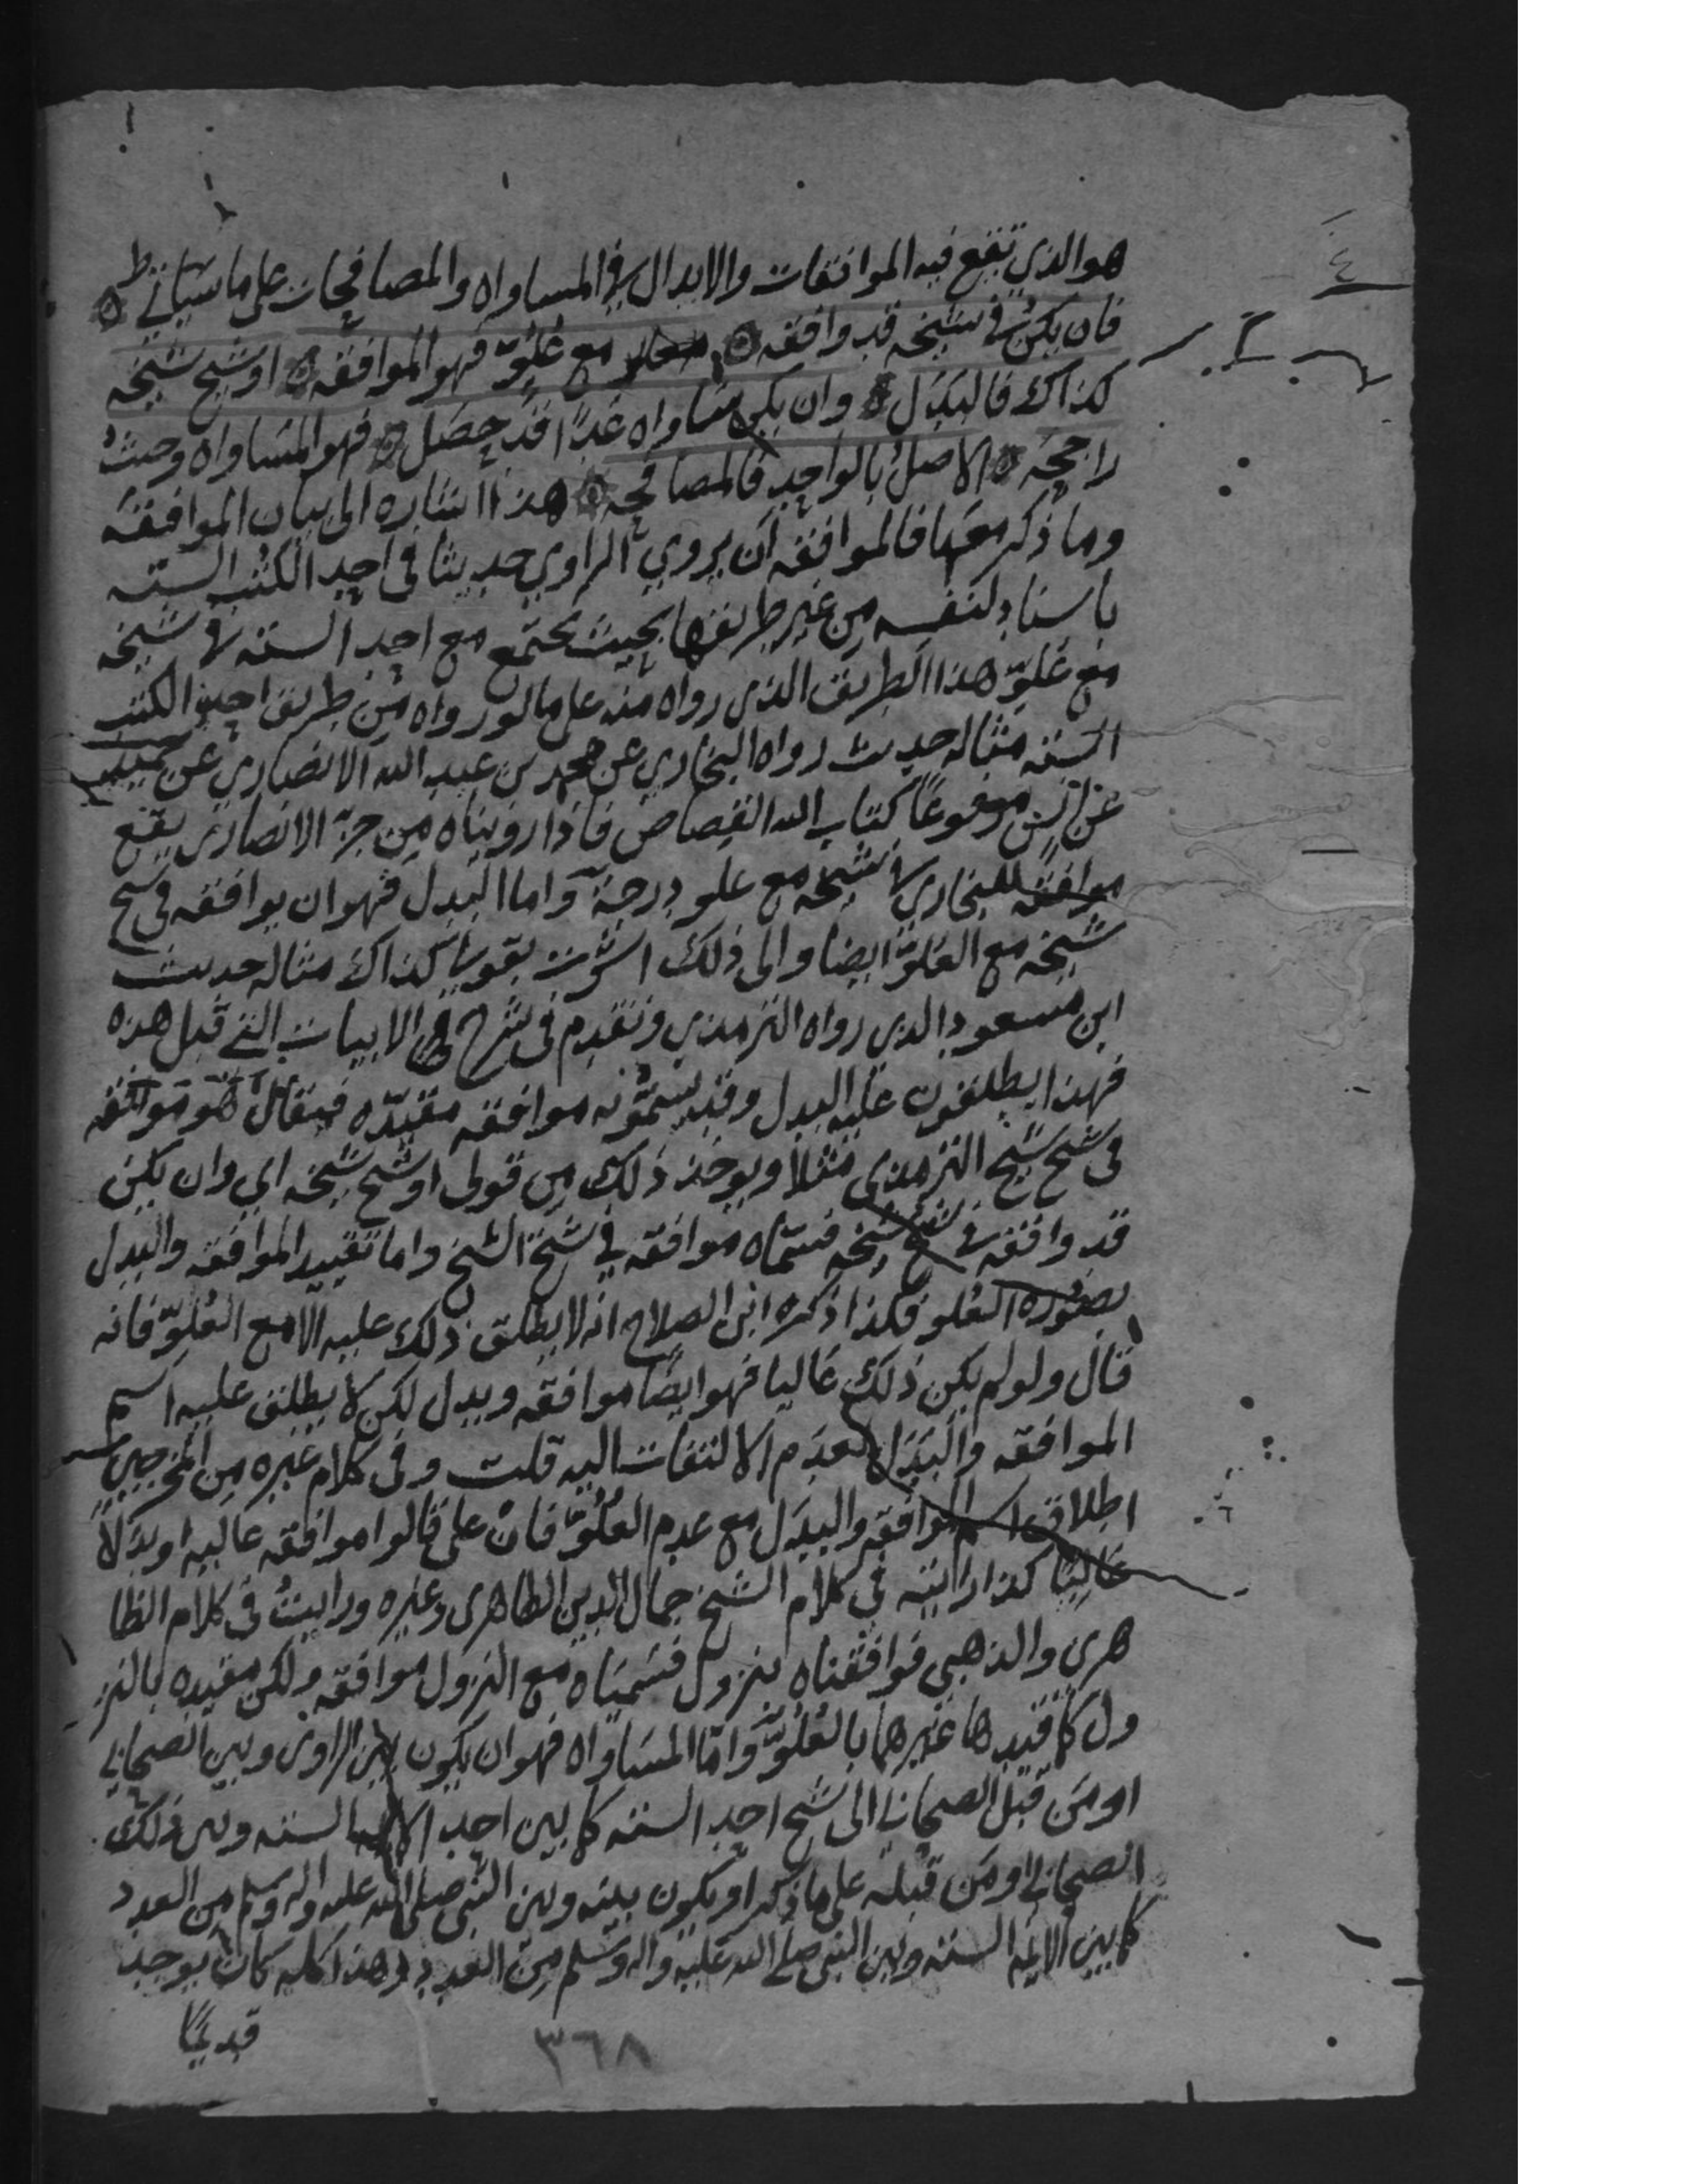 هو الذي تقع فيه الموافقات والابدال والمساواه والمصافحات على ما سياتي
فان يكن في شيخه قد وافقه مع علو فهو الموافقه او شيخ شيخه
كذاك فالبدل وان يكن ساواه عدا قد حصل فهو المساواه وحيث
راجحه الاصل بالواحد فالمصافحه هذا اشاره الى بيان الموافقه
وما ذكر معها فالموافقه ان يروي الراوي حديثا في احد الكتب السته
باسناد لنفسه من غير طريقها بحيث يجتمع مع احد السته في شيخه
مع علو هذا الطريق الذي رواه منه على ما لو رواه من طريق احد الكتب
السته مثاله حديث رواه البخاري عن محمد بن عبد الله الانصاري عن حميد
عن انس مرفوعا كتاب الله القصاص فاذا رويناه من جزء الانصاري يقع
موافقه للبخاري في شيخه مع علو درجة واما البدل فهو ان يوافقه في شيخ
شيخه مع العلو ايضا والى ذلك اشرت بقولي كذاك مثاله حديث
ابن مسعود الذي رواه الترمذي وتقدم في شرح الابيات التي قبل هذه
فهذا يطلقون عليه البدل وقد يسمونه موافقه مقيده فيقال هو موافقه
في شيخ شيخ الترمذي مثلا ويوخذ ذلك من قولي او شيخ شيخه اي وان يكن
قد وافقه في شيخ شيخه فسماه موافقه في شيخ الشيخ واما تقييد الموافقه والبدل
بصوره العلو فكذا ذكره ابن الصلاح انه لا يطلق ذلك عليه الا مع العلو فانه
قال ولو لم يكن ذلك عاليا فهو ايضا موافقه وبدل لكن لا يطلق عليه اسم
الموافقه والبدل لعدم الالتفات اليه قلت وفي كلام غيره من المخرجين
اطلاق اسم الموافقه والبدل مع عدم العلو فان علا قالوا موافقه عاليه او بدلا
عاليا كذا رايته في كلام الشيخ جمال الدين الظاهري وغيره ورايت في كلام الظا
هري والذهبي فوافقناه بنزول فسمياه مع النزول موافقه ولكن مقيده بالنز
ول كما قيدها غيرهما بالعلو واما المساواه فهو ان يكون بين الراوي وبين الصحابي
او من قبل الصحابي الى شيخ احد السته كما بين احد الايمه السته وبين ذلك
الصحابي او من قبله على ما ذكر او يكون بينه وبين النبي صلى الله عليه واله وسلم من العدد
كما بين الايمه السته وبين النبي صلى الله عليه واله وسلم من العدد وهذا كله كان يوجد
قديما
٣٦٨